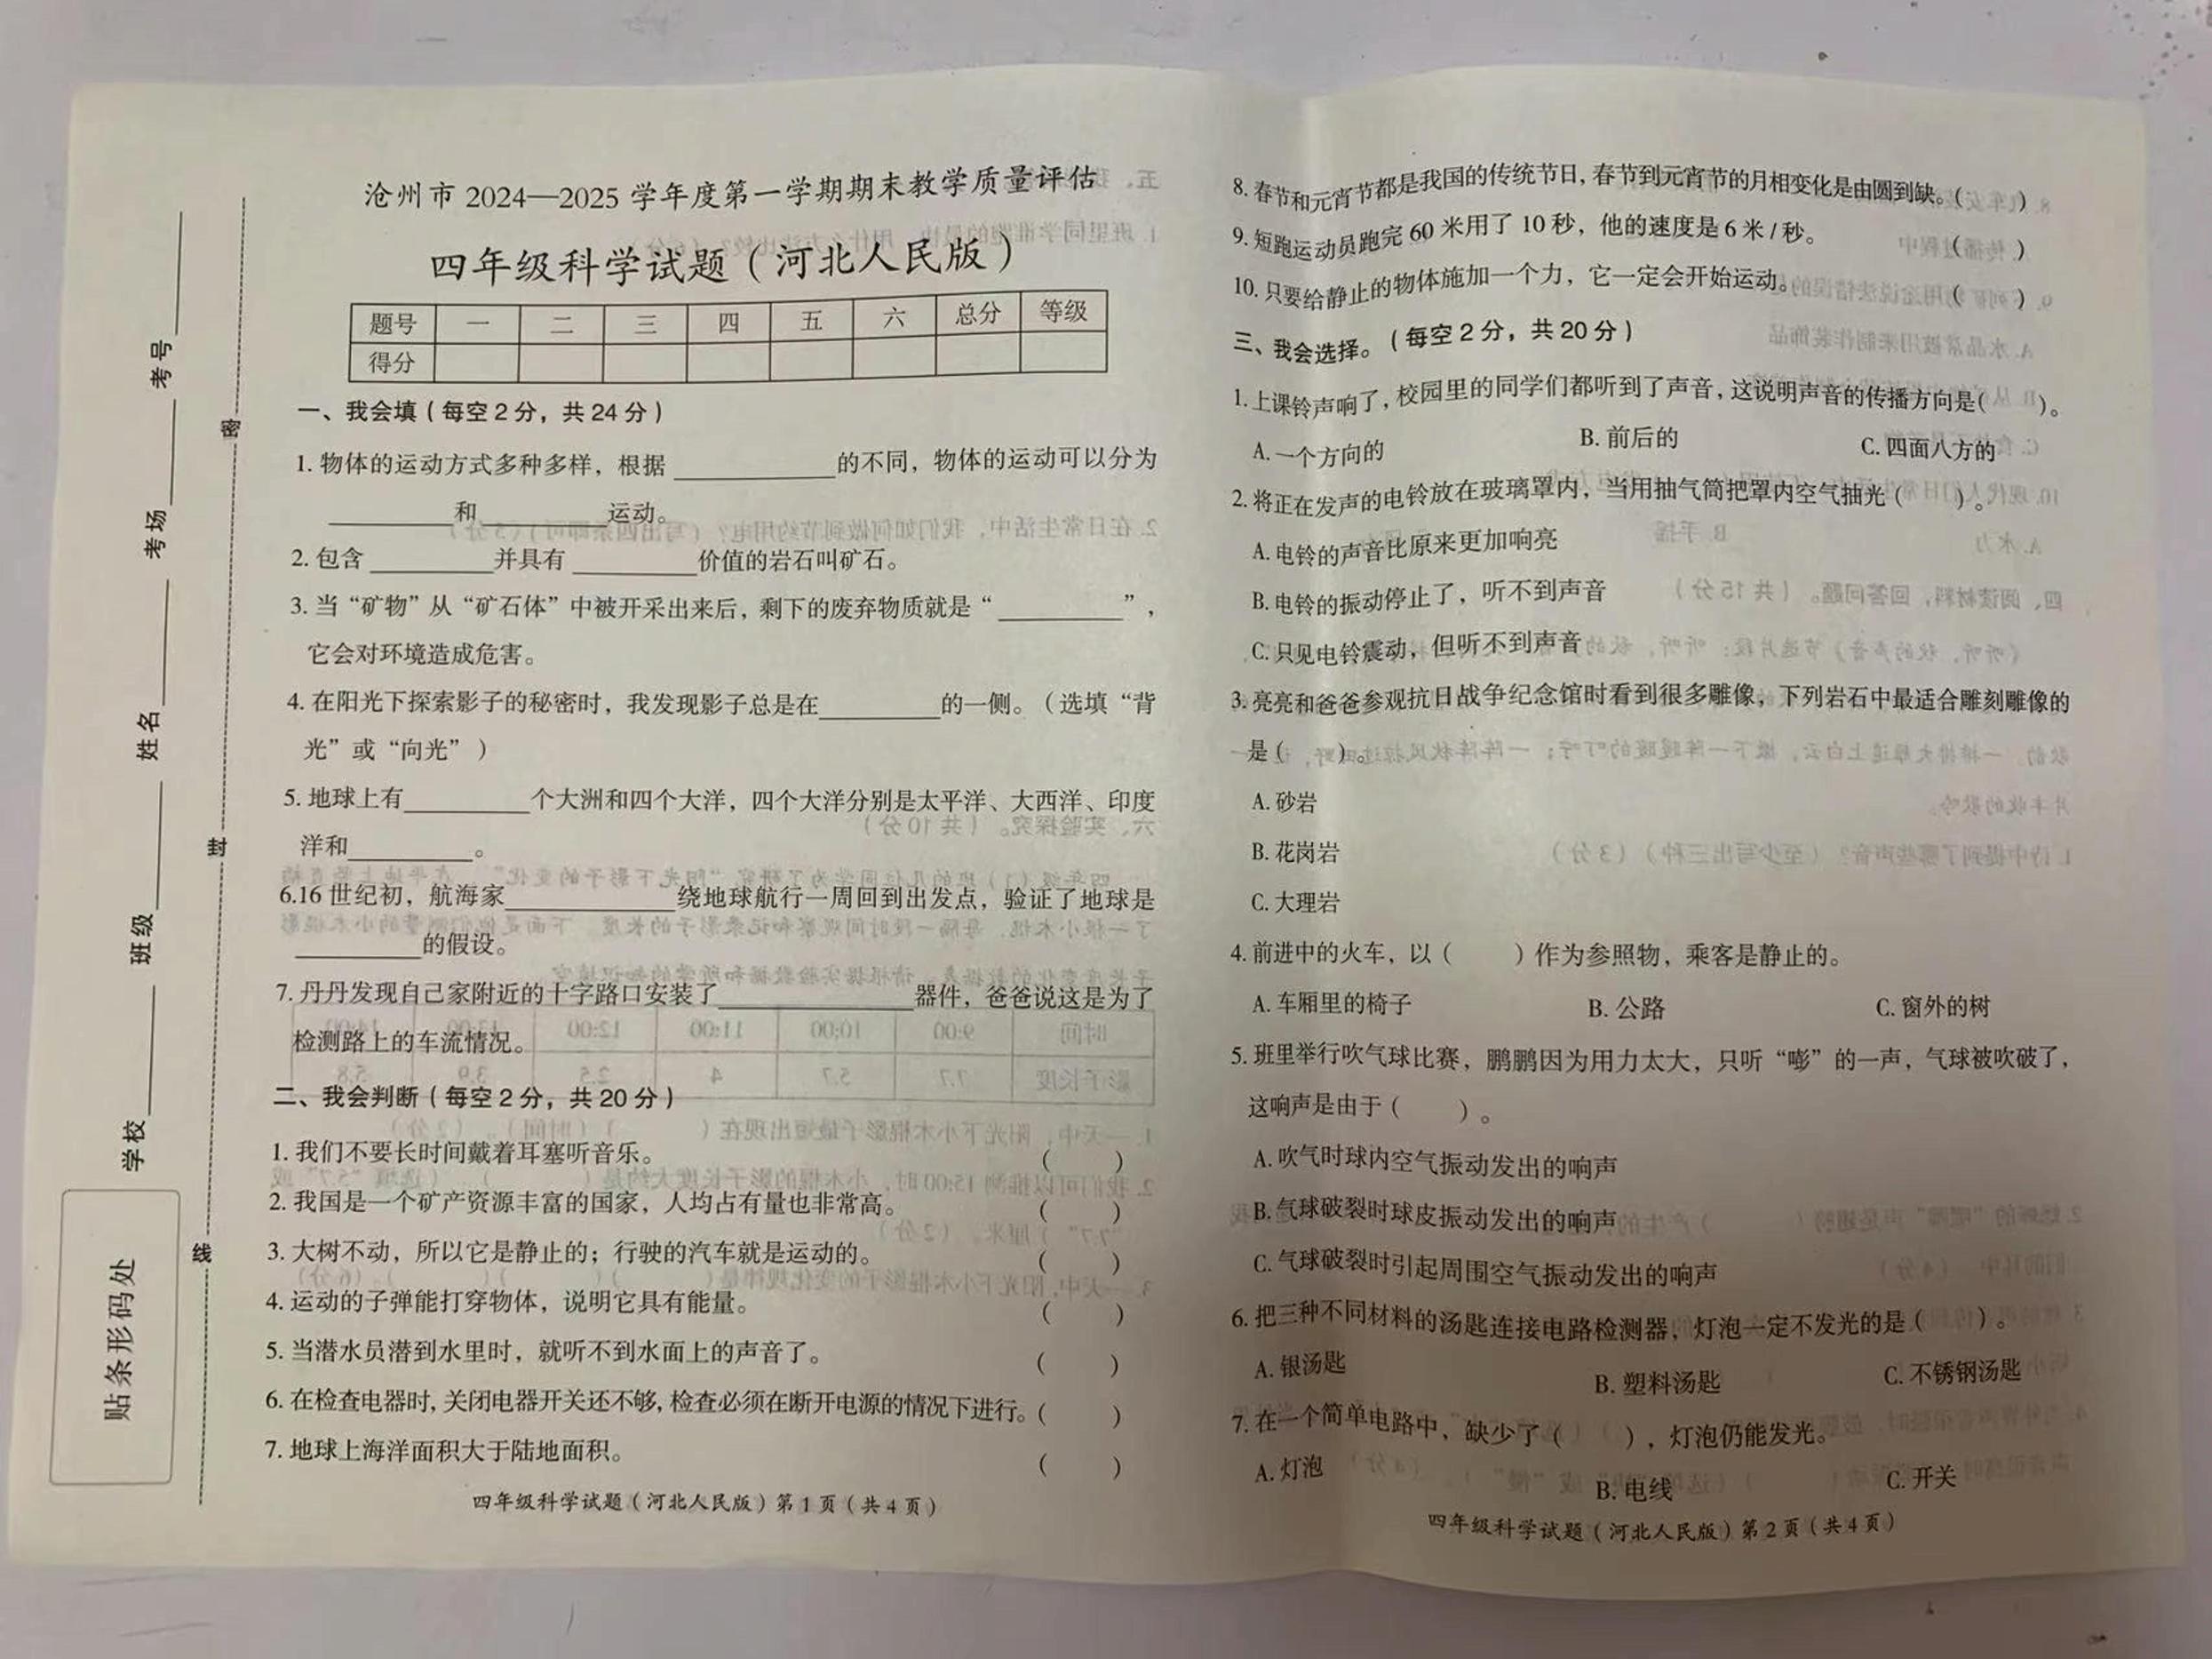 学校
班级
姓名
考场
考号
贴条形码处
密
封
线
沧州市 2024—2025 学年度第一学期期末教学质量评估
四年级科学试题（河北人民版）
题号 一 二 三 四 五 六 总分 等级
得分
一、我会填（每空 2 分，共 24 分）
1. 物体的运动方式多种多样，根据____________的不同，物体的运动可以分为
__________和__________运动。
2. 包含__________并具有__________价值的岩石叫矿石。
3. 当“矿物”从“矿石体”中被开采出来后，剩下的废弃物质就是“__________”，
它会对环境造成危害。
4. 在阳光下探索影子的秘密时，我发现影子总是在__________的一侧。（选填“背
光”或“向光”）
5. 地球上有__________个大洲和四个大洋，四个大洋分别是太平洋、大西洋、印度
洋和__________。
6.16 世纪初，航海家____________绕地球航行一周回到出发点，验证了地球是
__________的假设。
7. 丹丹发现自己家附近的十字路口安装了______________器件，爸爸说这是为了
检测路上的车流情况。
二、我会判断（每空 2 分，共 20 分）
1. 我们不要长时间戴着耳塞听音乐。（ ）
2. 我国是一个矿产资源丰富的国家，人均占有量也非常高。（ ）
3. 大树不动，所以它是静止的；行驶的汽车就是运动的。（ ）
4. 运动的子弹能打穿物体，说明它具有能量。（ ）
5. 当潜水员潜到水里时，就听不到水面上的声音了。（ ）
6. 在检查电器时，关闭电器开关还不够，检查必须在断开电源的情况下进行。（ ）
7. 地球上海洋面积大于陆地面积。（ ）
四年级科学试题（河北人民版）第 1 页（共 4 页）
8. 春节和元宵节都是我国的传统节日，春节到元宵节的月相变化是由圆到缺。（ ）
9. 短跑运动员跑完 60 米用了 10 秒，他的速度是 6 米 / 秒。（ ）
10. 只要给静止的物体施加一个力，它一定会开始运动。（ ）
三、我会选择。（每空 2 分，共 20 分）
1. 上课铃声响了，校园里的同学们都听到了声音，这说明声音的传播方向是（ ）。
A. 一个方向的 B. 前后的 C. 四面八方的
2. 将正在发声的电铃放在玻璃罩内，当用抽气筒把罩内空气抽光（ ）。
A. 电铃的声音比原来更加响亮
B. 电铃的振动停止了，听不到声音
C. 只见电铃震动，但听不到声音
3. 亮亮和爸爸参观抗日战争纪念馆时看到很多雕像，下列岩石中最适合雕刻雕像的
是（ ）。
A. 砂岩
B. 花岗岩
C. 大理岩
4. 前进中的火车，以（ ）作为参照物，乘客是静止的。
A. 车厢里的椅子 B. 公路 C. 窗外的树
5. 班里举行吹气球比赛，鹏鹏因为用力太大，只听“嘭”的一声，气球被吹破了，
这响声是由于（ ）。
A. 吹气时球内空气振动发出的响声
B. 气球破裂时球皮振动发出的响声
C. 气球破裂时引起周围空气振动发出的响声
6. 把三种不同材料的汤匙连接电路检测器，灯泡一定不发光的是（ ）。
A. 银汤匙 B. 塑料汤匙 C. 不锈钢汤匙
7. 在一个简单电路中，缺少了（ ），灯泡仍能发光。
A. 灯泡 B. 电线 C. 开关
四年级科学试题（河北人民版）第 2 页（共 4 页）